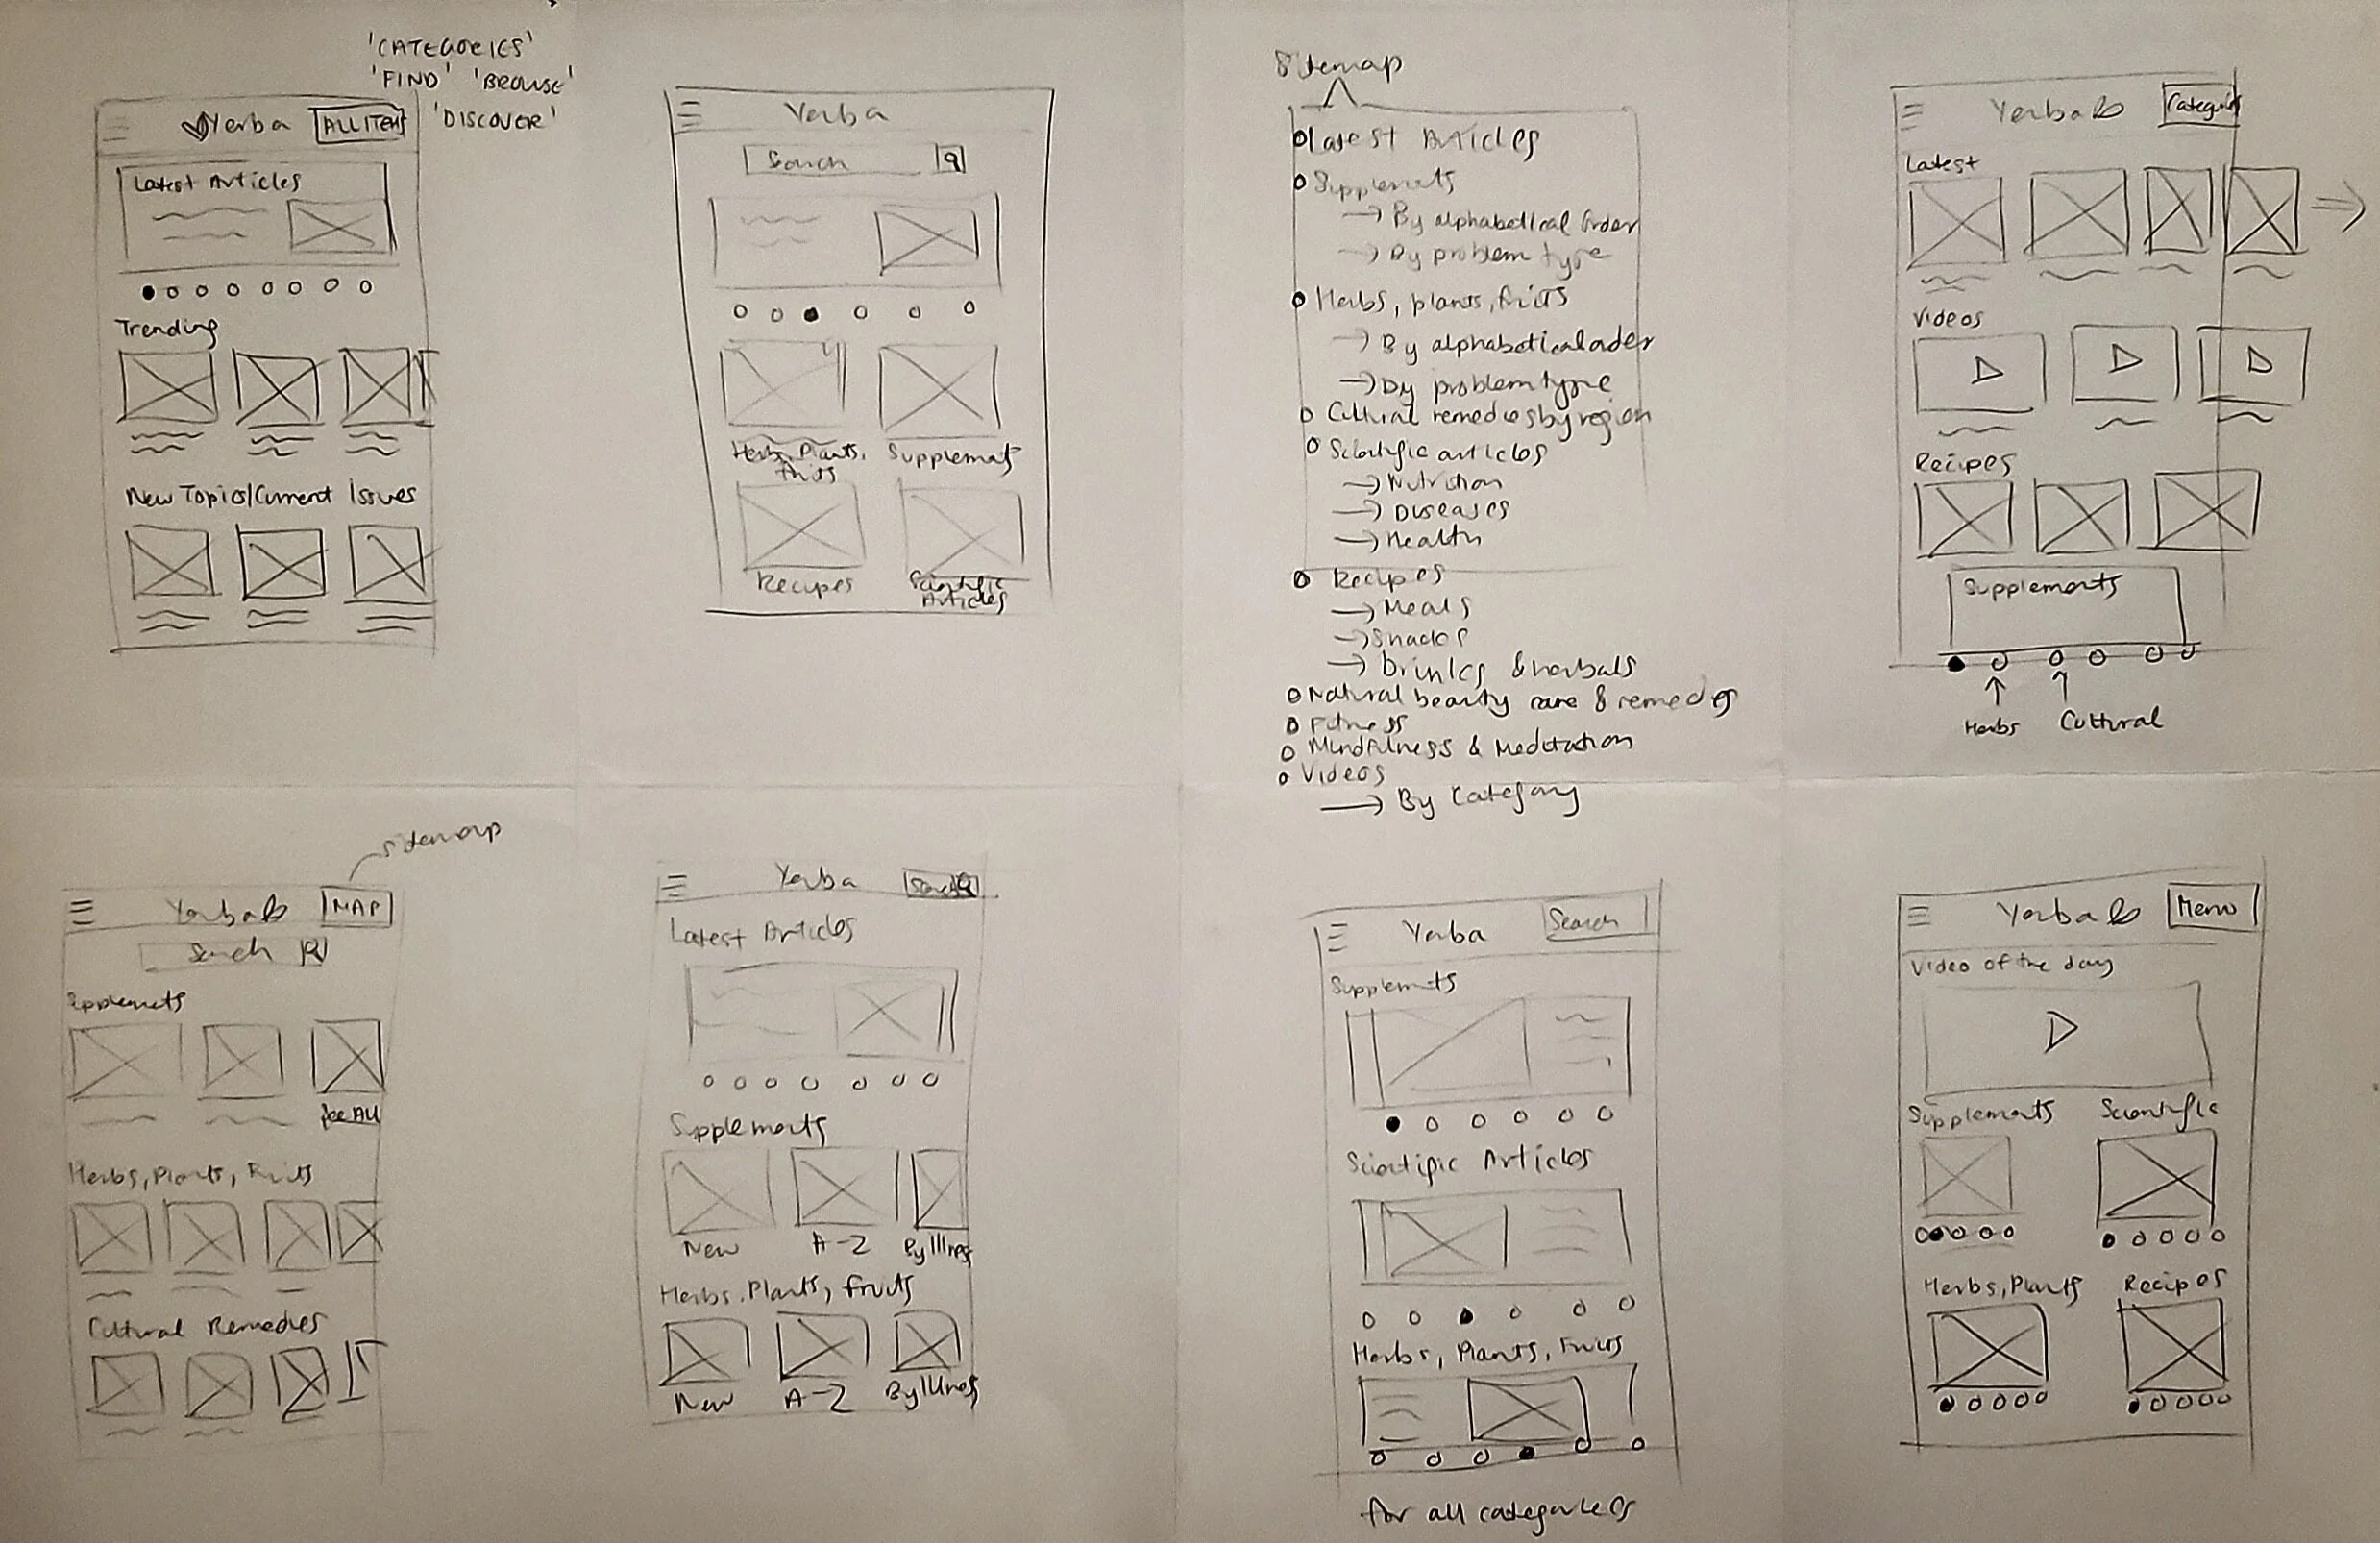 'CATEGORIES'
'FIND' 'BROWSE'
'DISCOVER'
Yerba
ALL ITEMS
Latest Articles
Trending
New Topics/Current Issues
Yerba
Search
Herbs, Plants,
fruits
Supplements
Recipes
Scientific
Articles
Sitemap
Latest Articles
Supplements
→ By alphabetical order
→ By problem type
Herbs, plants, fruits
→ By alphabetical order
→ By problem type
Cultural remedies by region
Scientific articles
→ Nutrition
→ Diseases
→ Health
Recipes
→ Meals
→ Snacks
→ Drinks & herbals
Natural beauty care & remedies
Fitness
Mindfulness & Meditation
Videos
→ By Category
Yerba
Categories
Latest
Videos
Recipes
Supplements
Herbs
Cultural
sitemap
Yerba
MAP
Search
Supplements
See All
Herbs, Plants, Fruits
Cultural Remedies
Yerba
Search
Latest Articles
Supplements
New
A-Z
By Illness
Herbs, Plants, fruits
New
A-Z
By Illness
Yerba
Search
Supplements
Scientific Articles
Herbs, Plants, Fruits
for all categories
Yerba
Menu
Video of the day
Supplements
Scientific
Herbs, Plants
Recipes